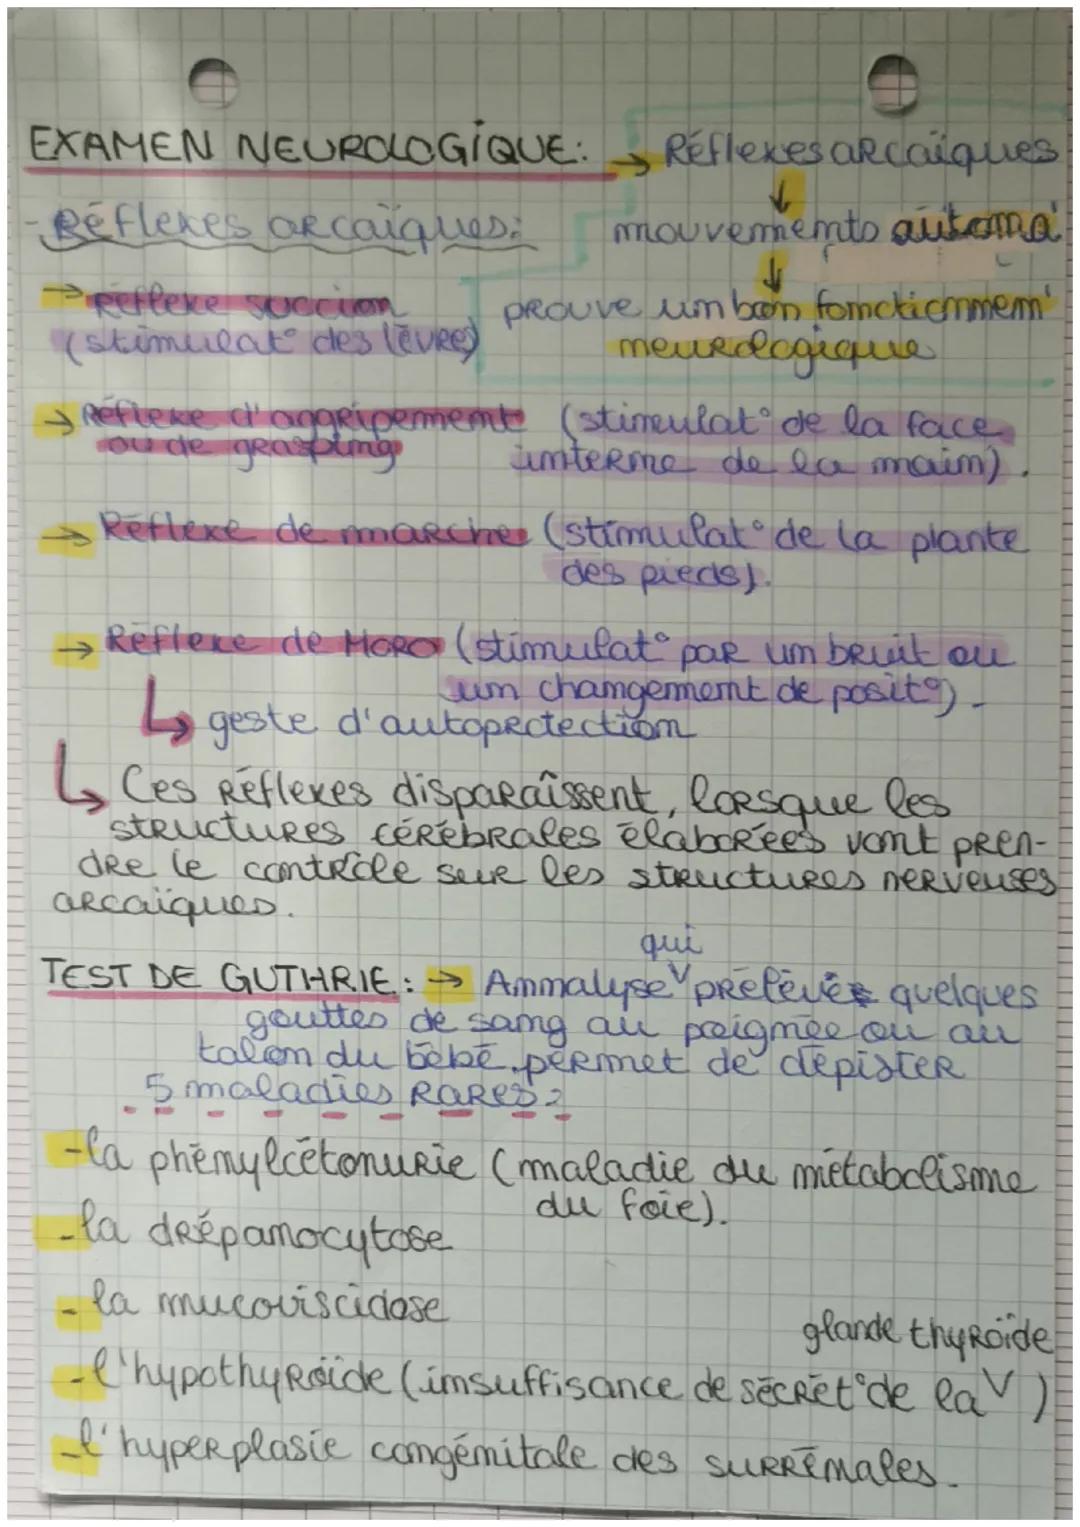 EXAMEN NEUROLOGIQUE: → Réflexes arcaïques
↓
- Réflexes arcaïques: mouvements automa
↓
→ réflexe succion prouve un bon fonctionnem
(stimulat° des lèvres) neurologique
→ Réflexe d'aggripement (stimulat° de la face
ou de grasping interne de la main).
→ Réflexe de marche (stimulat° de la plante
des pieds).
→ Réflexe de MORO (stimulat° par un bruit ou
un changement de posit°).
↳ geste d'autoprotection
↳ Ces réflexes disparaîssent, lorsque les
structures cérébrales élaborées vont pren-
dre le contrôle sur les structures nerveuses
arcaïques.
qui
TEST DE GUTHRIE: → Annalyse prélevée quelques
gouttes de sang au poignée ou au
talon du bébé, permet de dépister
5 maladies rares:
- la phénylcétonurie (maladie du métabolisme
du foie).
- la drépanocytose
- la mucoviscidose
glande thyroïde
- l'hypothyroïde (insuffisance de sécrét° de la )
- l'hyperplasie congénitale des surrénales.